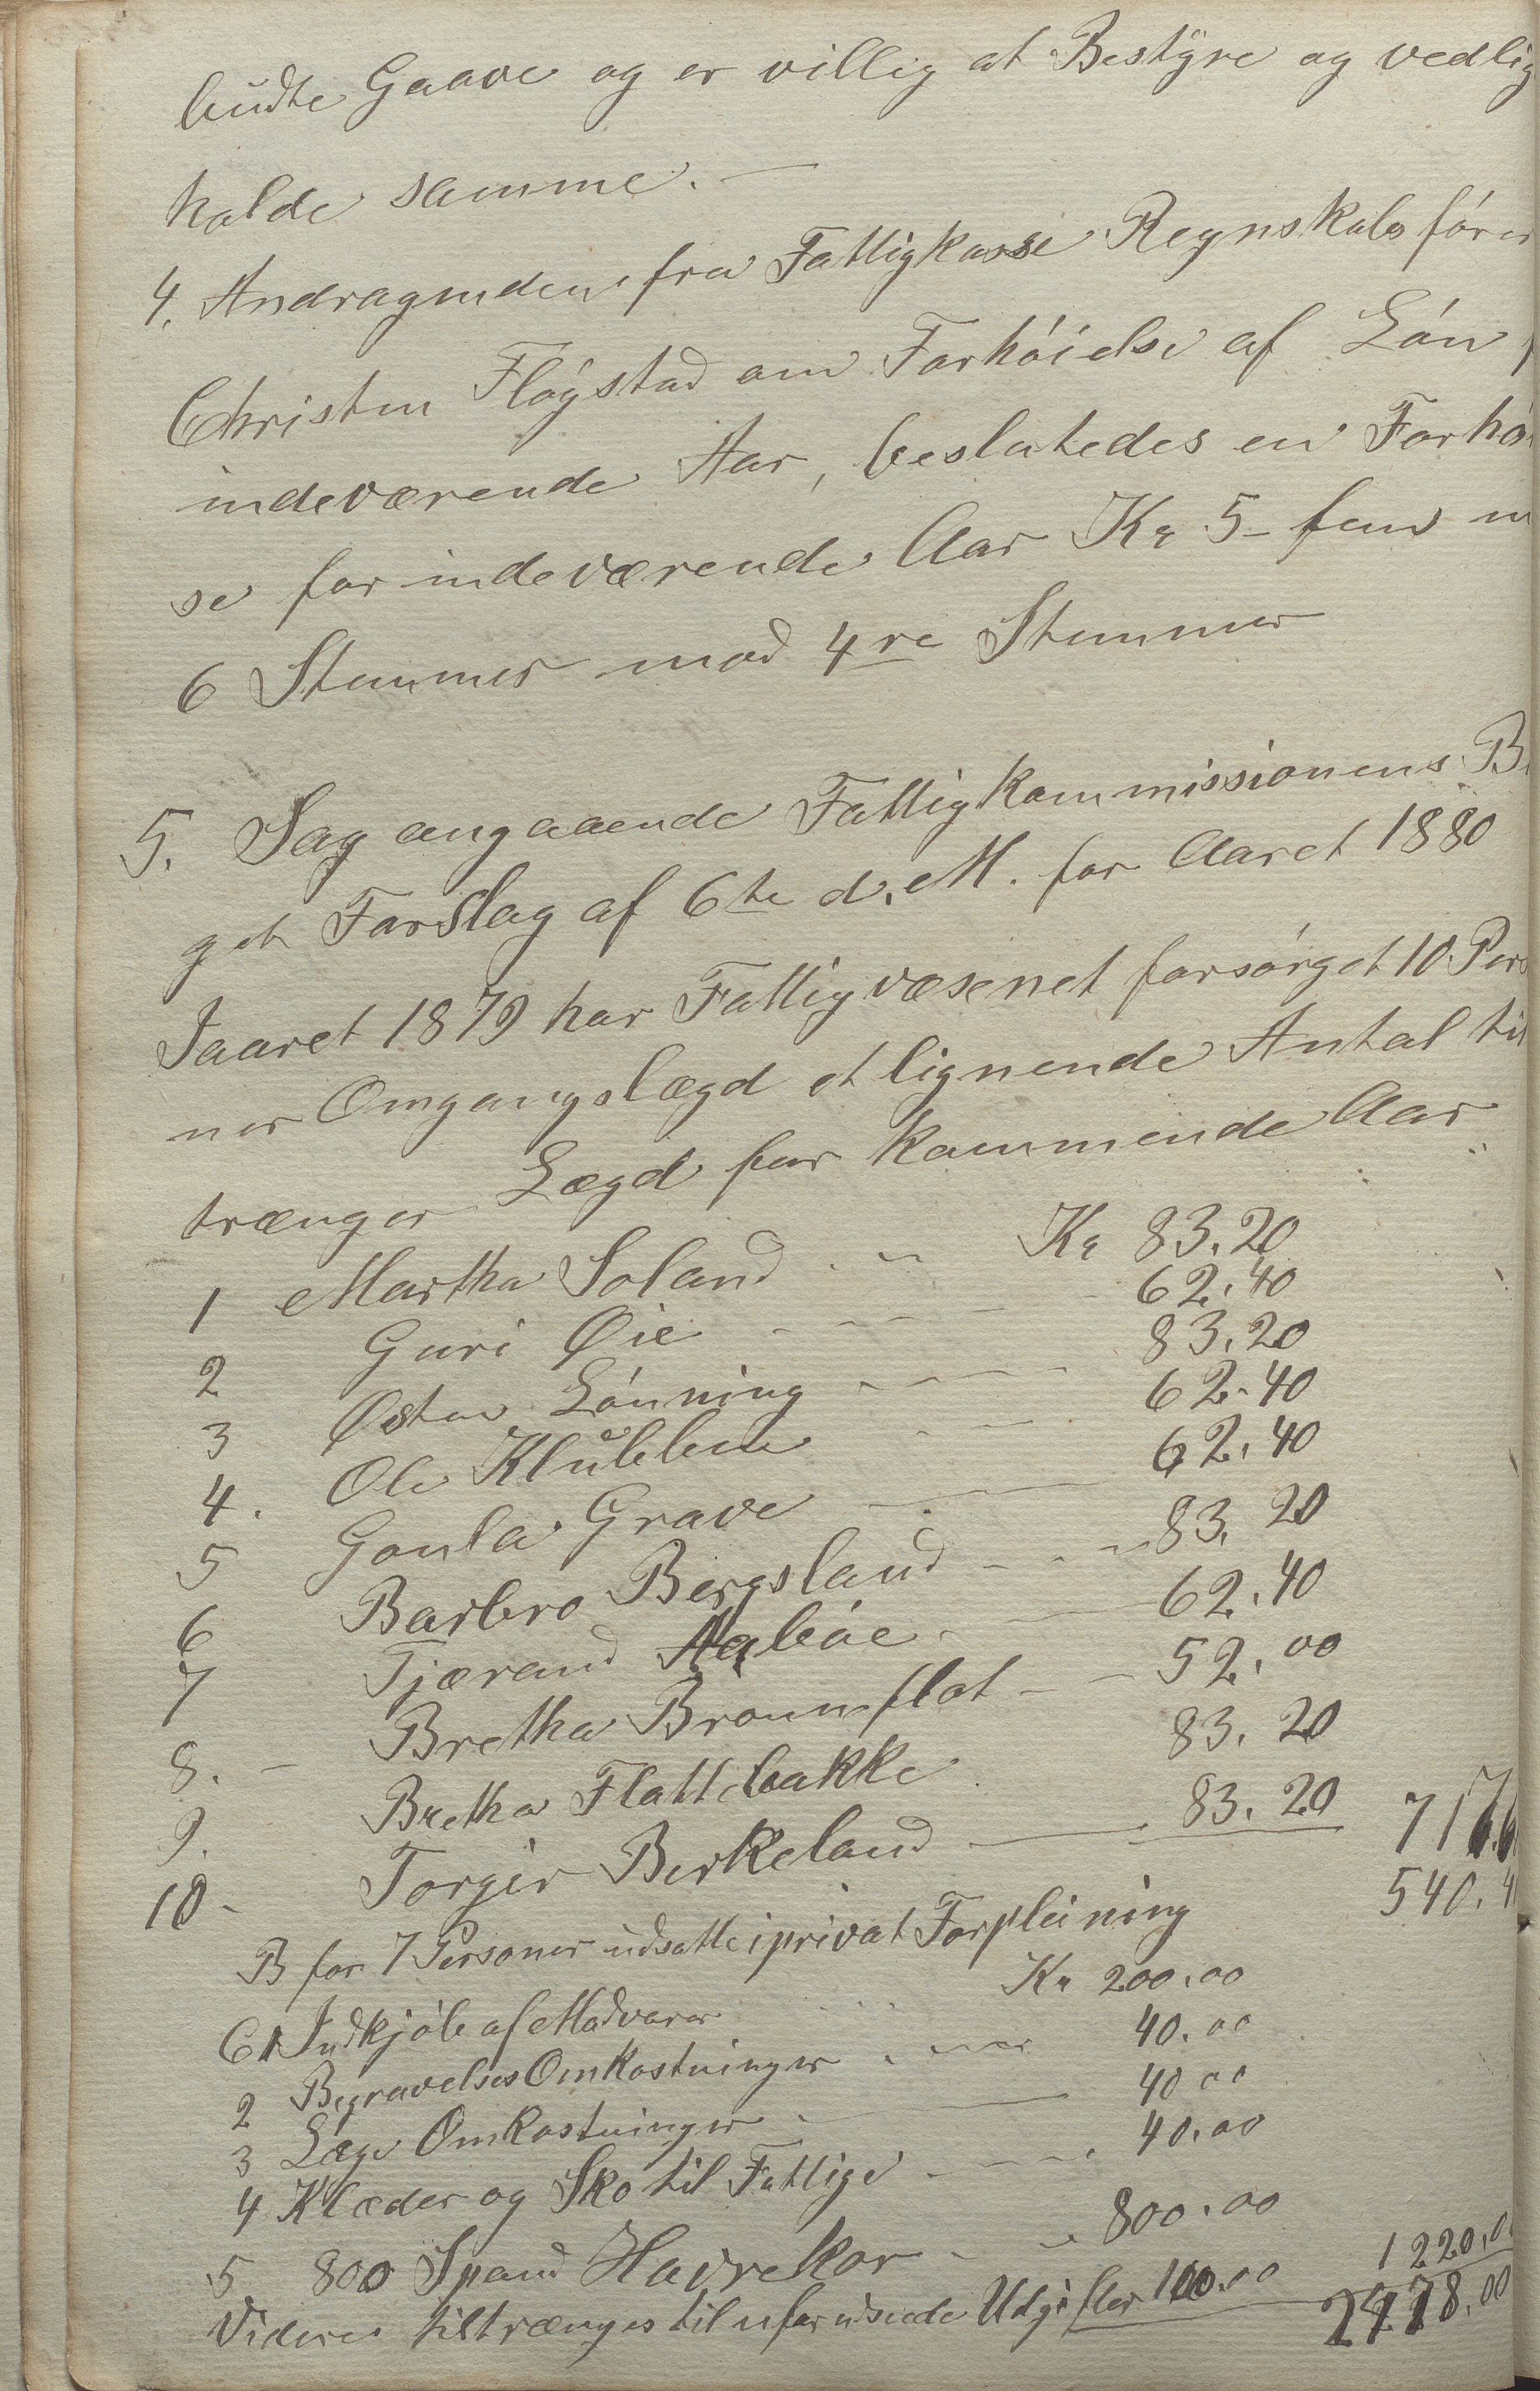 budte Gaave og er villig at Bestÿre og vedlig
holde samme. —
4. Andragenden fra Fattigkasse Regnskabsfører
Christen Fløgstad om Forhøielse af Løn
indeværende Aar, besluttedes en Forhøi
se for indeværende Aar Kr 5 – fem m
6 Stemmer mod 4re Stemmer
5. Sag angaaende Fattigkommissionens B
get Forslag af 6te d. M. for Aaret 1880
Iaaret 1879 har Fattigvæsenet forsørget 10 Pers
ner Omgangslægd et lignende Antal til
trænger Lægd for kommende Aar
1 Martha Soland Kr 83.20
2 Guri Øie 62.40
3 Østen Lønning 83.20
4. Ole Klubben 62.40
5 Gonla Grave 62.40
6 Barbro Bergsland 83.20
7 Tjærand Aabøe 62.40
8. – Bretha Bronnflot 52.00
9. Bretha Flattebakke 83.20
10 – Torger Birkeland 83.20 717.6
B for 7 Personer udsatte i privat Forpleining 540.4
C 1 Indkjøb af Madvarer Kr 200.00
2 Begravelses Omkostninger 40.00
3 Læge Omkostninger 40 00
4 Klæder og Sko til Fattige 40.00
5 800 Spand Havrekor 800.00
Videre tiltrænges til uforudseede Udgifter 100.00 1220.00
2478.00